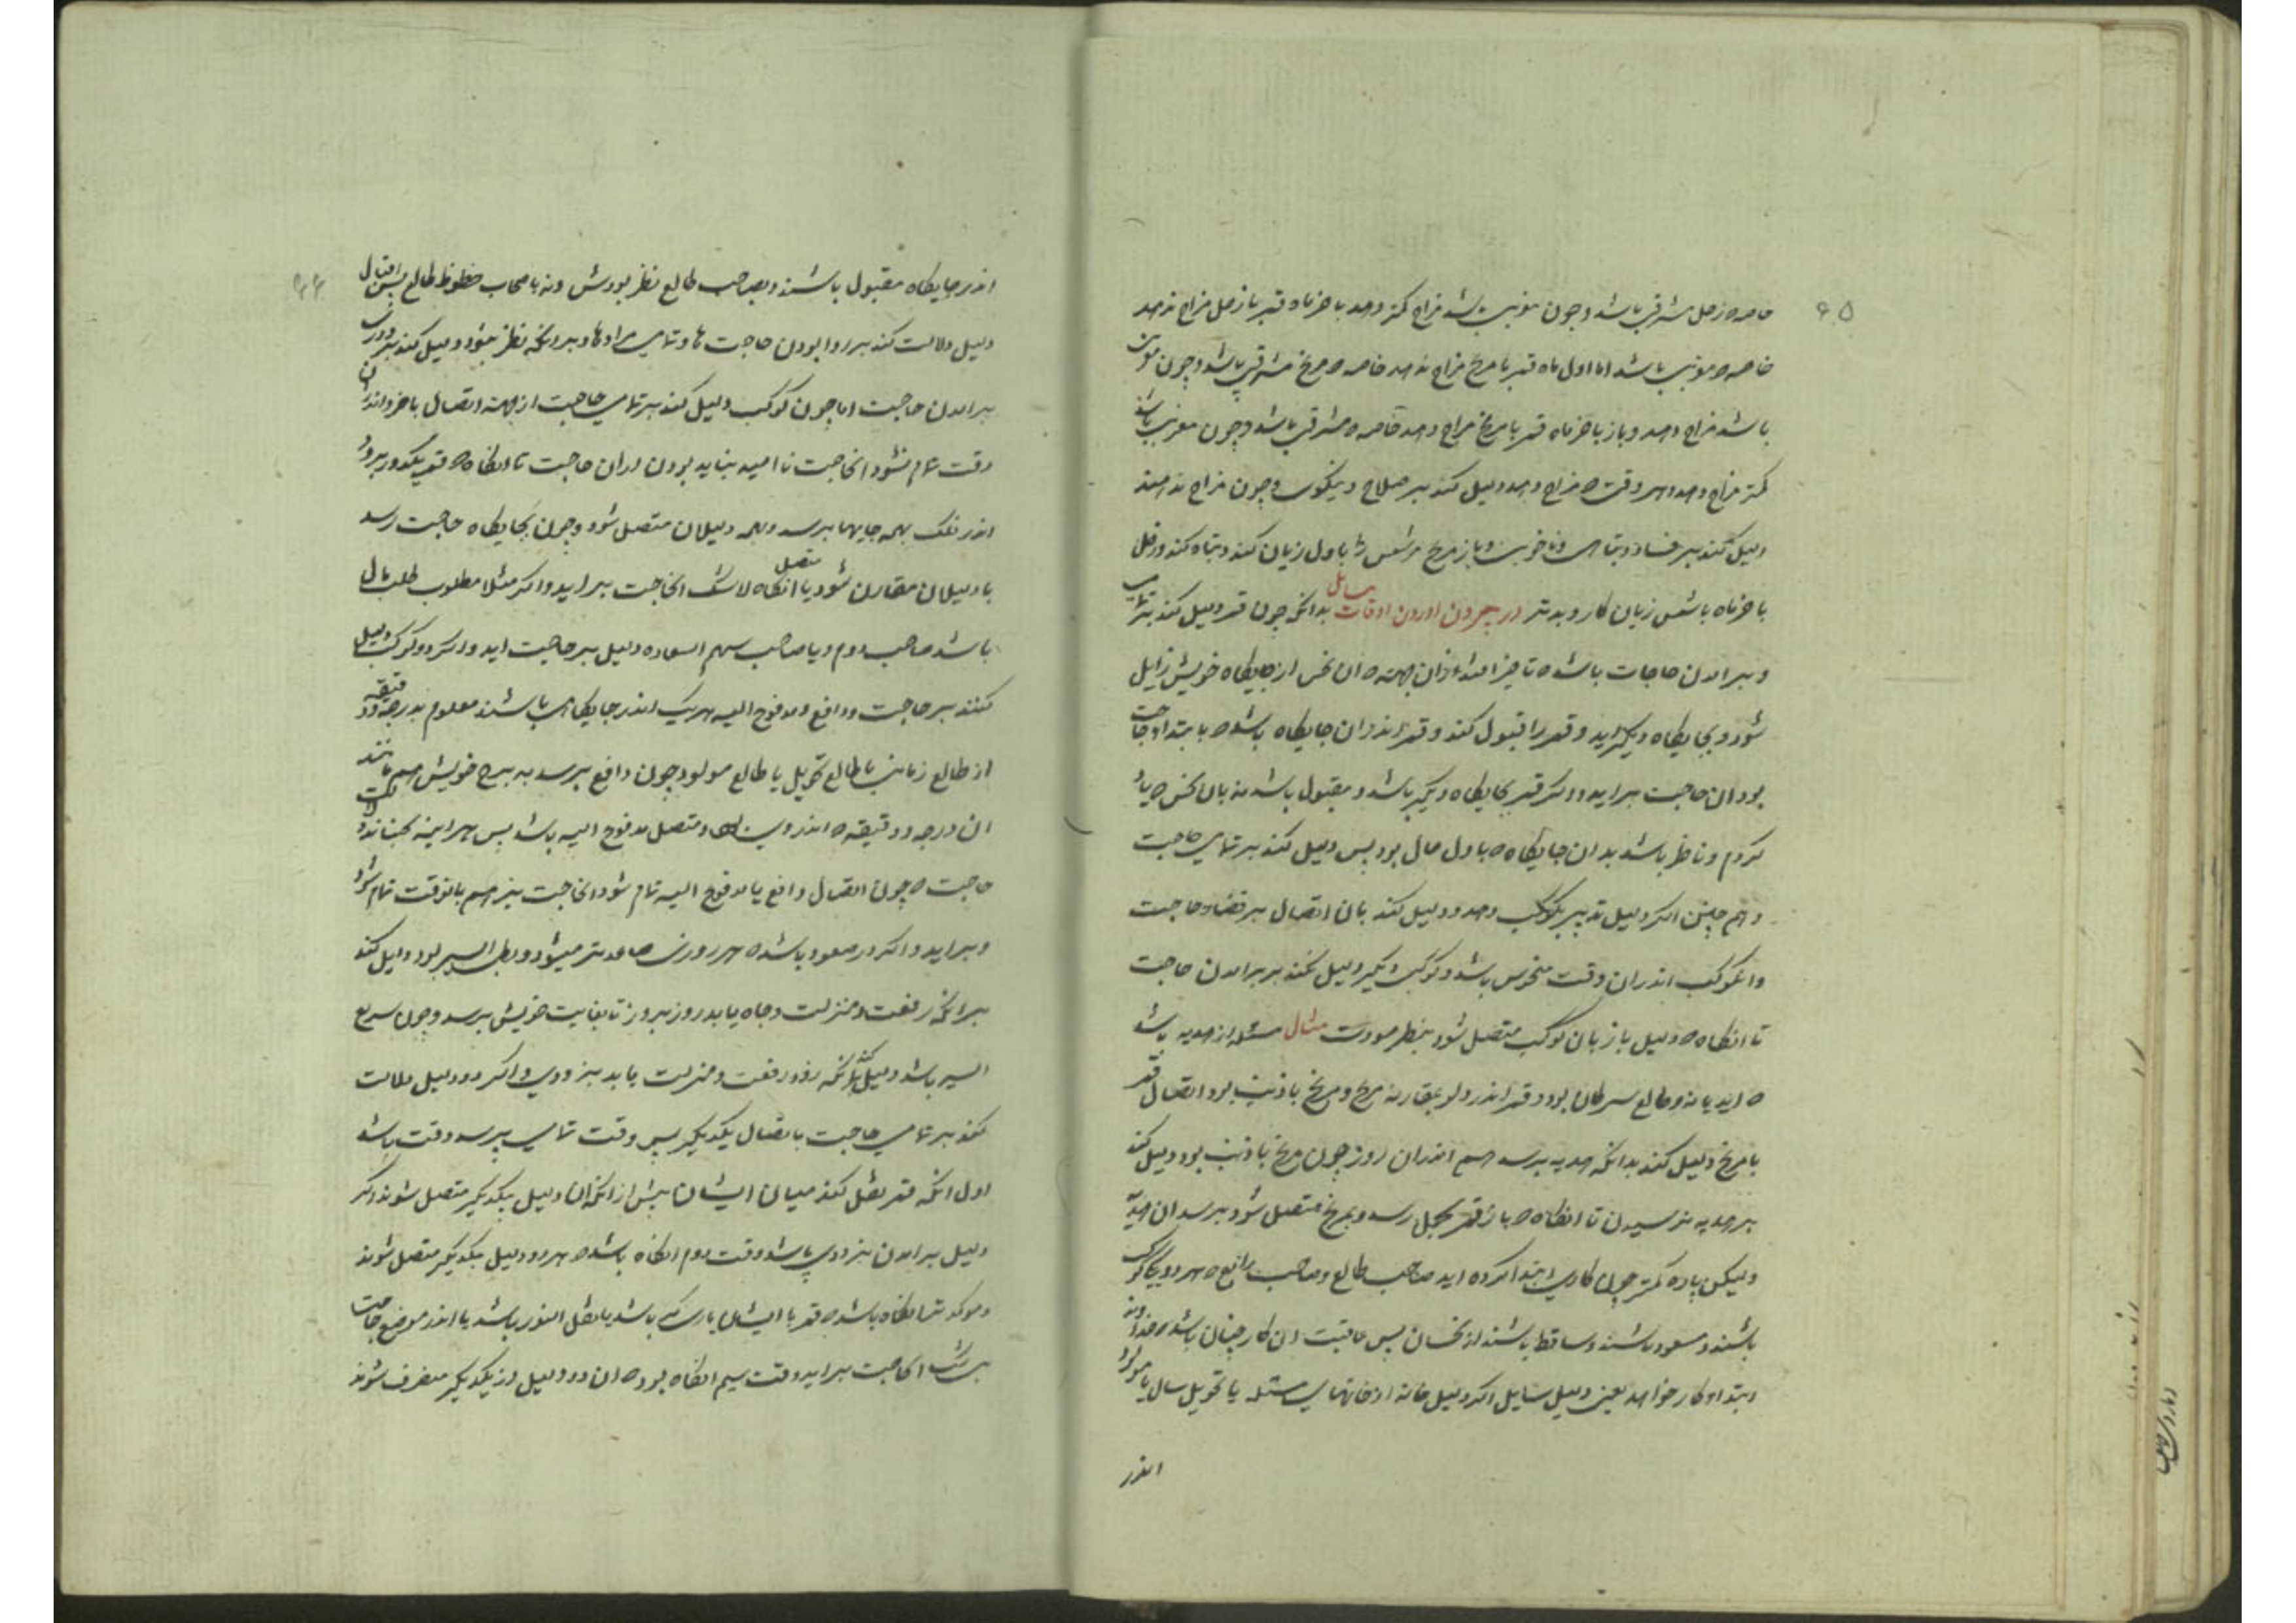 ۶۵
خاصه ه زحل مشرقی باشد و چون مغربی باشد مزاج کمتر دهد باخر ماه قمر با زحل مزاج ندهد
خاصه ه مغربی باشد اما اول ماه قمر با مریخ مزاج ندهد خاصه ه مریخ مشرقی باشد و چون
باشد مزاج دهد و باز باخر ماه قمر با مریخ مزاج دهد خاصه ه مشرقی باشد و چون مغربی باشد
کمتر مزاج دهد و هر وقت ه مزاج دهد دلیل کند بر صلاح و نیکوی و چون مزاج ندهد
دلیل کند بر فساد و تباهی و ناخوبی و باز مریخ مر شمس را باول زیان کند و تباه کند و زحل
باخر ماه با شمس زیان کار و بدتر در بیرون اوردن اوقات مسایل بدانکه چون قمر دلیل کند
و بر امدن حاجات باشد ه تا چیز افتد از آن جهته ه ان نحس از جایگاه خویش زایل
شود و بجایگاه دیگر اید و قمر را قبول کند و قمر اندران جایگاه باشد ه بابتداء حاجت
بود ان حاجت بر اید و اگر قمر بجایگاه دیگر باشد و مقبول باشد نه بان نحس ه یاد
کردم و ناظر باشد بدان جایگاه ه باول حال بود پس دلیل کند بر تمامی حاجت
و هم چنین اگر دلیل تدبیر بکوکب دهد و دلیل کند بان اتصال بر قضاء حاجت
وانکوکب اندران وقت منحوس باشد و کوکب دیگر دلیل کند بر بر امدن حاجت
تا انگاه ه دلیل باز بان کوکب متصل شود بنظر مودت مثال مسئله از هدیه باشد
ه اید یا نه و طالع سرطان بود و قمر اندر دلو بمقارنه مریخ و مریخ با ذنب بود اتصال قمر
با مریخ دلیل کند بدانکه هدیه برسد هم اندران روز چون مریخ با ذنب بود دلیل کند
بر هدیه نرسیدن تا انگاه ه باز قمر بحمل رسد و بمریخ متصل شود برسد ان هدیه
ولیکن پاره کمتر چون کاری ابتدا کرده اید صاحب طالع و صاحب رابع ه هر دو
باشند و مسعود باشند و ساقط باشند از نحسان پس عاقبت ان کار چنان باشد
ابتداء کار خواهد یعنی دلیل سایل اگر دلیل خانه از خانهای مسئله یا تحویل سال یا مولود
اندر
۶۶
اندر جایگاه مقبول باشند و بصاحب طالع نظر بودش ونه باصحاب حظوظ طالع پس اقبال
دلیل دلالت کند بر روا بودن حاجت ها و تمامی مرادها و برانکه نظر نبود دلیل کند
بر امدن حاجت اما چون کوکب دلیل کند بر تمامی حاجت از جهته اتصال باخر و اندران
وقت تمام نشود انحاجت ناامید نباید بودن از ان حاجت تا انگاه ه قمر یکدور برود
اندر فلک بهمه جایها برسد و بهمه دلیلان متصل شود و چون بجایگاه حاجت رسد
با دلیلان مقارن شود یا متصل انگاه لاشک انحاجت بر اید و اگر مثلا مطلوب طلب مال
باشد صاحب دوم و یا صاحب سهم السعاده دلیل بر حاجت اید و اگر دو کوکب دلیل
کنند بر حاجت و دافع و مدفوع الیه هر یک اندر جایگاهی باشند معلوم بدرجه و دقیقه
از طالع زمانی یا طالع تحویل یا طالع مولود چون دافع برسد به برج خویش هم مانند
ان درجه و دقیقه ه اندر وی است و متصل مدفوع الیه باشد پس هر اینه
حاجت ه چون اتصال دافع با مدفوع الیه تمام شود انحاجت نیز هم بانوقت تمام شود
و بر اید و اگر در صعود باشد ه هر روزی صاعدتر میشود و بطی السیر بود دلیل کند
برانکه رفعت و منزلت و جاه یابد روز بروز تا بغایت خویش برسد و چون سریع
السیر باشد دلیل کند برانکه زود رفعت و منزلت یابد بزودی و اگر دو دلیل دلالت
کند بر تمامی حاجت باتصال یکدیگر پس وقت تمامی بپرسد وقت باشد
اول انکه قمر نقل کند میان ایشان پیش از انکه ان دلیل بیکدیگر متصل شوند اگر
دلیل بر امدن بزودی باشد وقت دوم انگاه باشد ه هر دو دلیل بیکدیگر متصل شوند
و موکدتر انگاه باشد ه قمر با ایشان یاری گر باشد یا نقل النور باشد یا اندر موضع حاجت
بی شک انحاجت بر اید وقت سیم انگاه بود ه ان دو دلیل از یکدیگر منصرف شوند